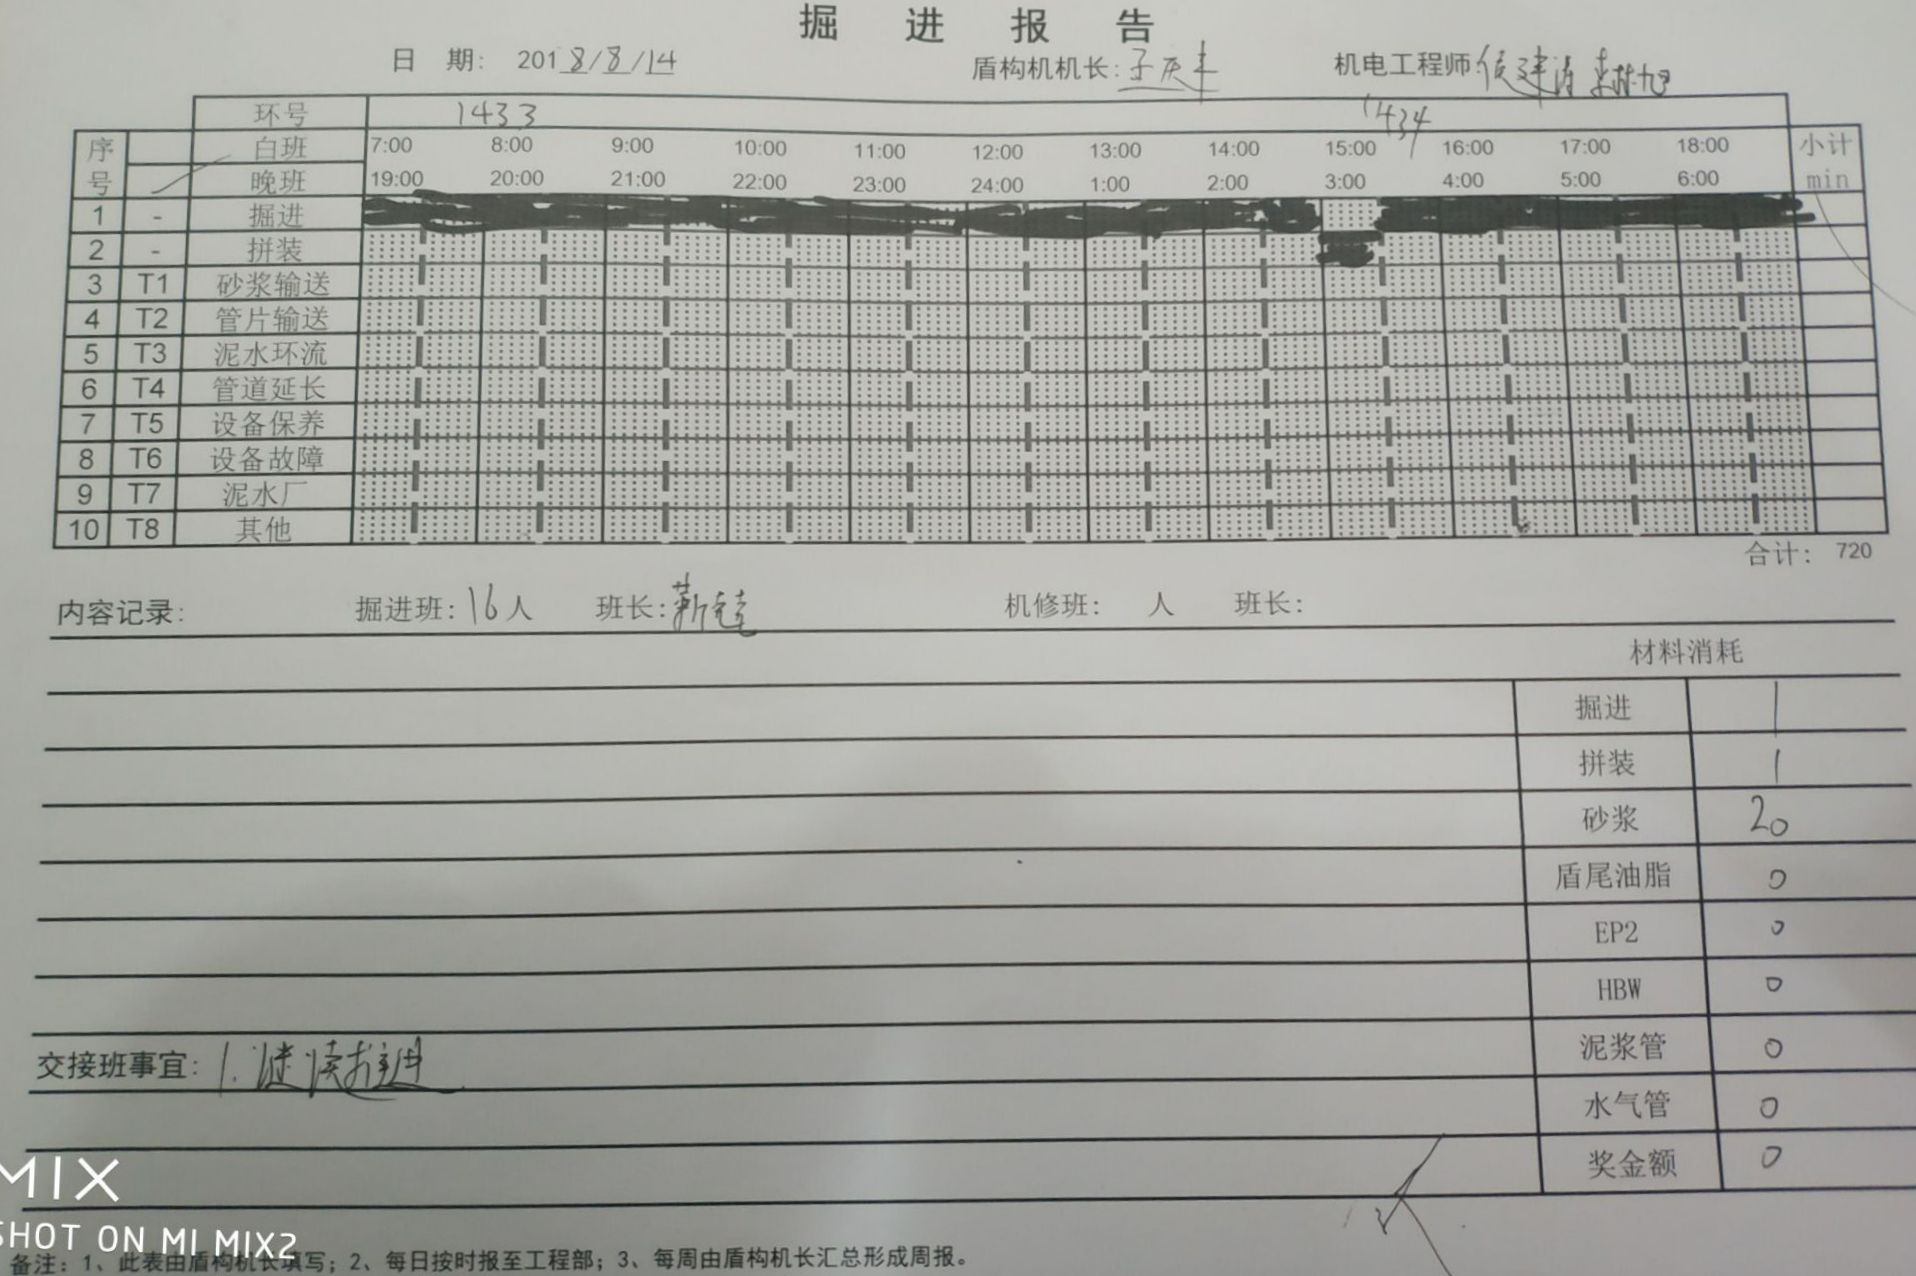 掘 进 报 告
日 期: 2018/8/14 盾构机机长: 机电工程师:
环号 1433 1434
序号 白班 7:00 8:00 9:00 10:00 11:00 12:00 13:00 14:00 15:00 16:00 17:00 18:00 小计
晚班 19:00 20:00 21:00 22:00 23:00 24:00 1:00 2:00 3:00 4:00 5:00 6:00 min
1 - 掘进
2 - 拼装
3 T1 砂浆输送
4 T2 管片输送
5 T3 泥水环流
6 T4 管道延长
7 T5 设备保养
8 T6 设备故障
9 T7 泥水厂
10 T8 其他
合计: 720
内容记录: 掘进班: 16人 班长: 机修班: 人 班长:
材料消耗
掘进 1
拼装 1
砂浆 20
盾尾油脂 0
EP2 0
HBW 0
泥浆管 0
交接班事宜: 1.继续推进
水气管 0
奖金额 0
MIX
SHOT ON MI MIX2
备注: 1、此表由盾构机长填写; 2、每日按时报至工程部; 3、每周由盾构机长汇总形成周报。